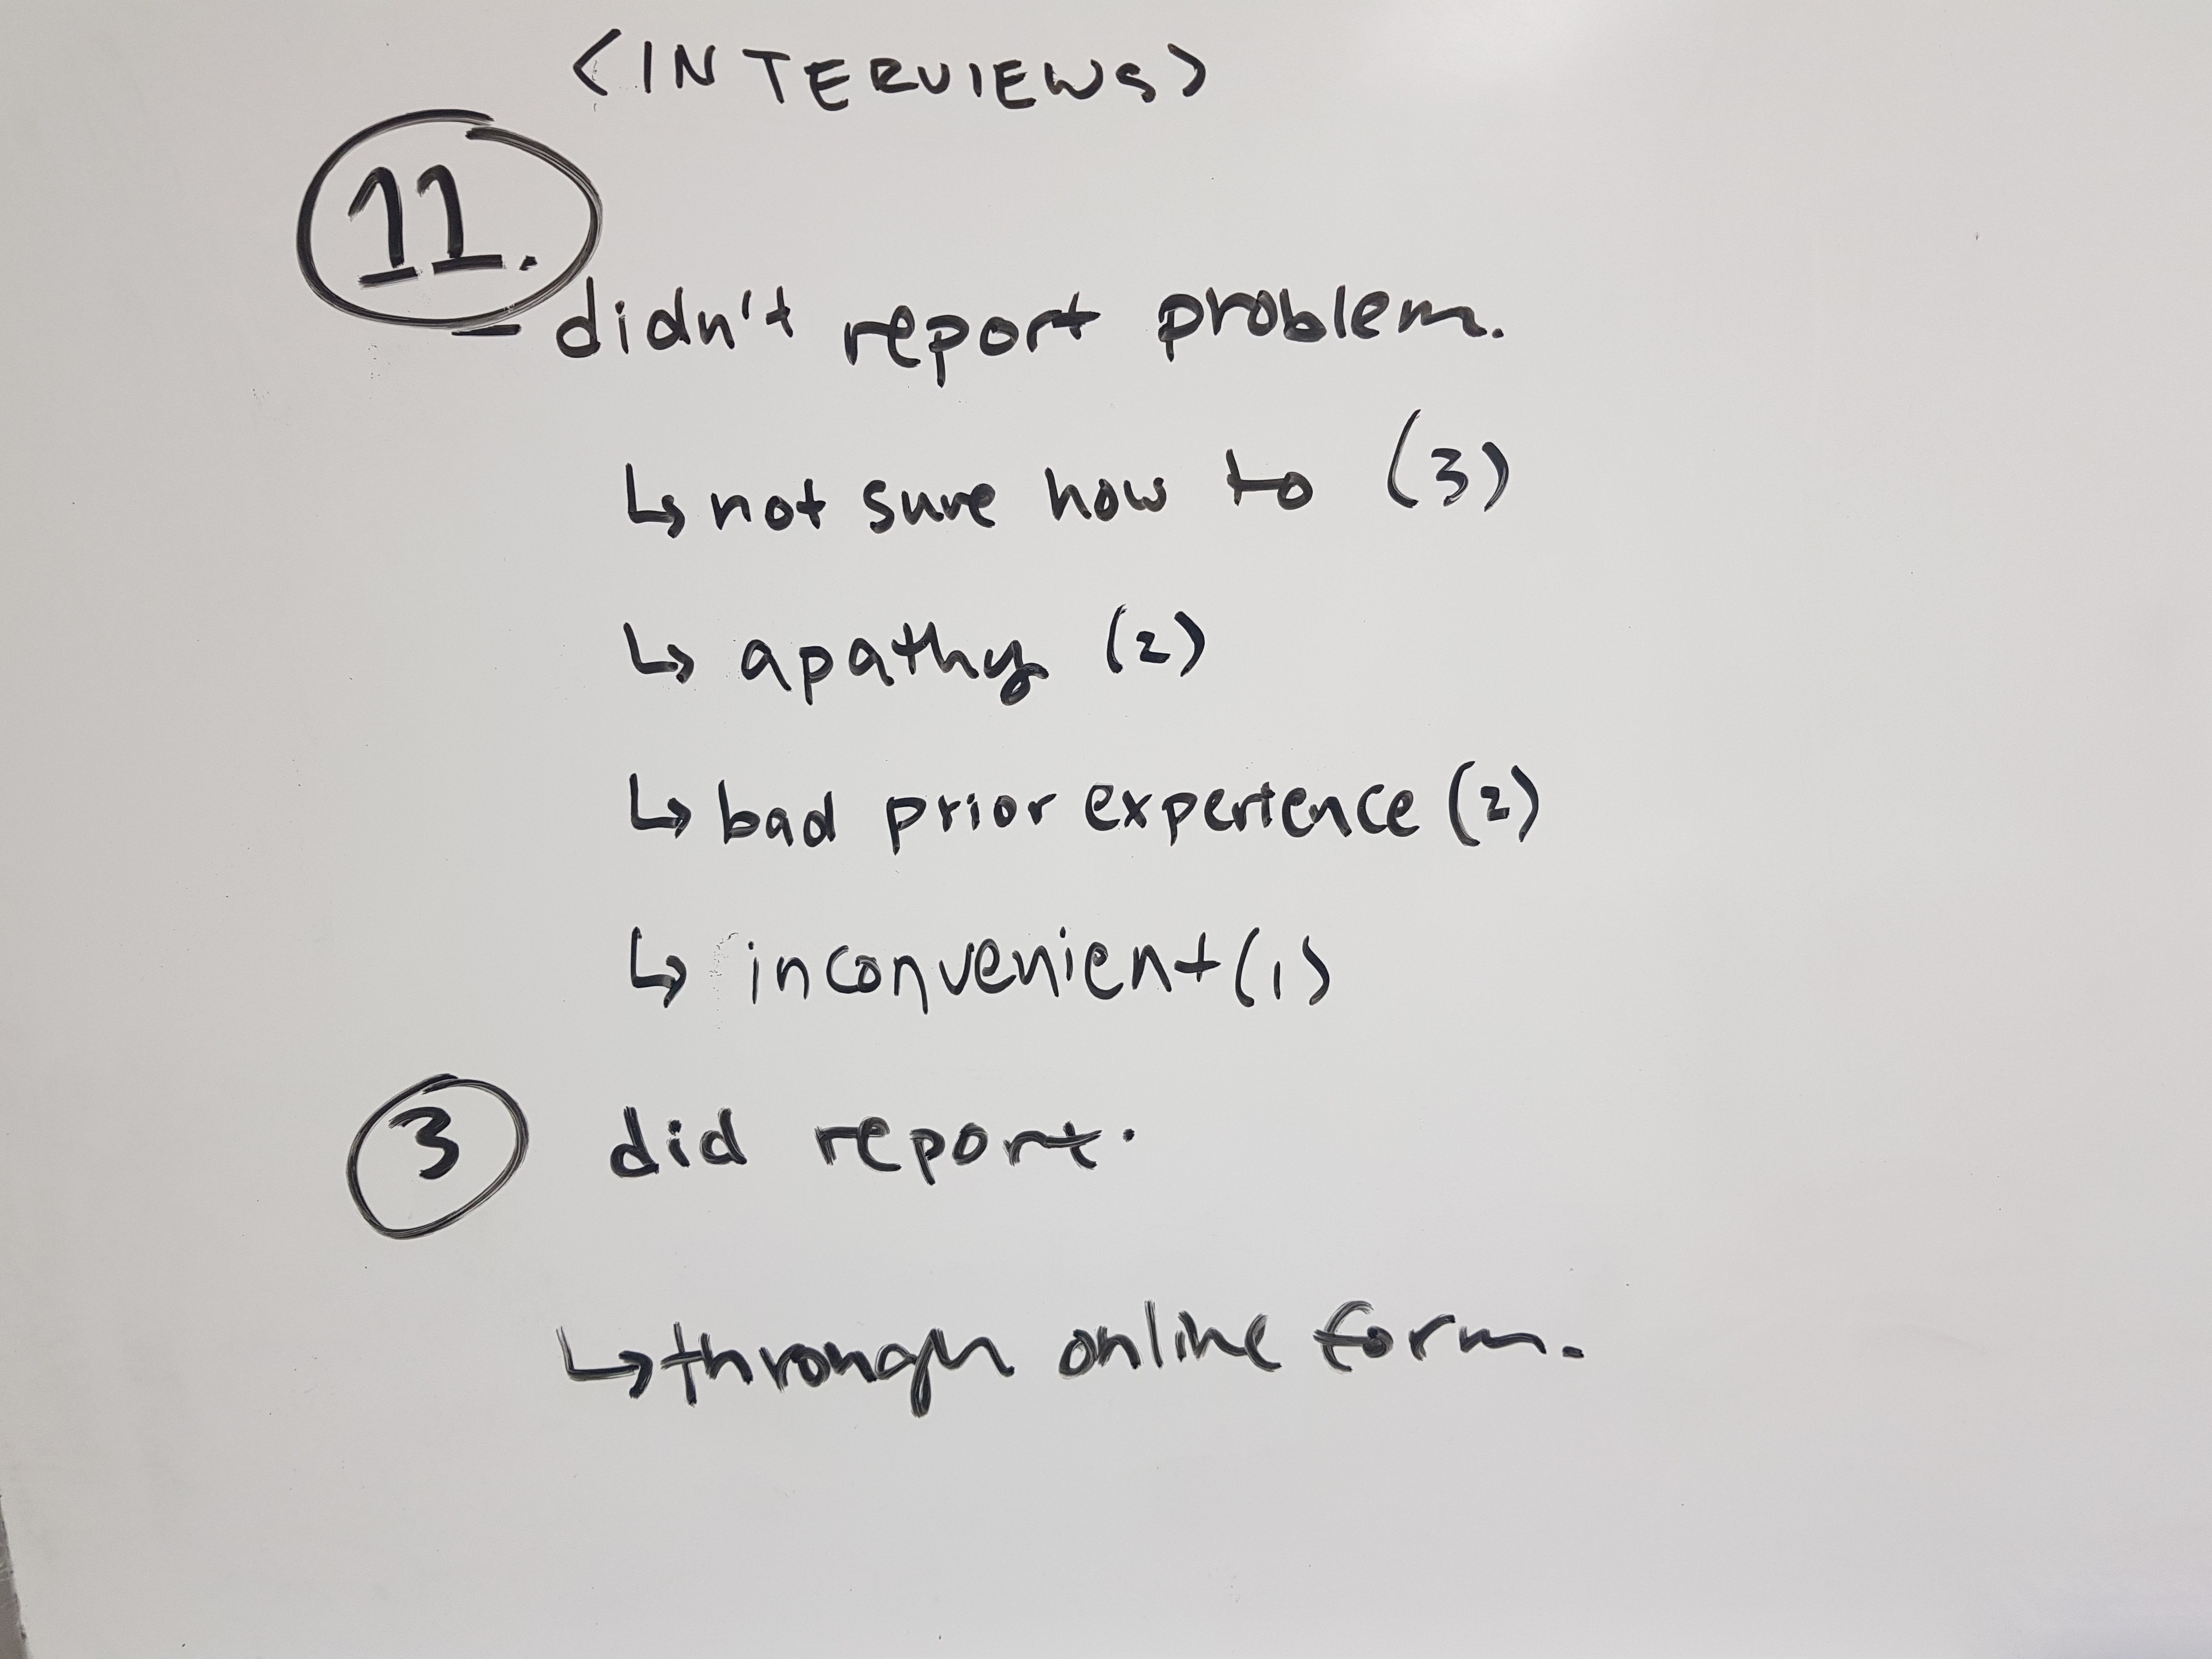 <INTERVIEWS>
11.
- didn't report problem.
↳ not sure how to (3)
↳ apathy (2)
↳ bad prior experience (2)
↳ inconvenient (1)
3 did report.
↳ through online form.